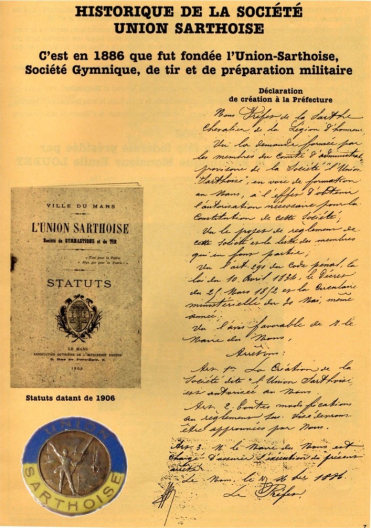 HISTORIQUE DE LA SOCIÉTÉ
UNION SARTHOISE
C'est en 1886 que fut fondée l'Union-Sarthoise,
Société Gymnique, de tir et de préparation militaire
Déclaration
de création à la Préfecture
Nous Préfet de la Sarthe
Chevalier de la Légion d'honneur,
Vu la demande formée par
les membres du Comité d'administrat.
provisoire de la Société "l'Union
Sarthoise", en voie de formation
au Mans, à l'effet d'obtenir
l'autorisation nécessaire pour la
Constitution de cette Société;
Vu le projet de règlement de
cette Société et la liste des membres
qui en font partie,
Vu l'art 291 du Code pénal, la
loi du 10 Avril 1834, le Décret
du 25 Mars 1852 et la Circulaire
ministérielle du 30 Mai, même
année;
Vu l'avis favorable de M. le
Maire du Mans,
Arrêtons:
Art. 1er La Création de la
Société dite "l'Union Sarthoise"
est autorisée au Mans
Art. 2. Toutes modifications
au règlement
être approuvées par Nous.
Art. 3. M. le Maire du Mans est
chargé d'assurer l'exécution du présent
arrêté
Le Mans, le
Le Préfet
VILLE DU MANS
L'UNION SARTHOISE
Société de GYMNASTIQUE et de TIR
STATUTS
LE MANS
Statuts datant de 1906
UNION
SARTHOISE
7